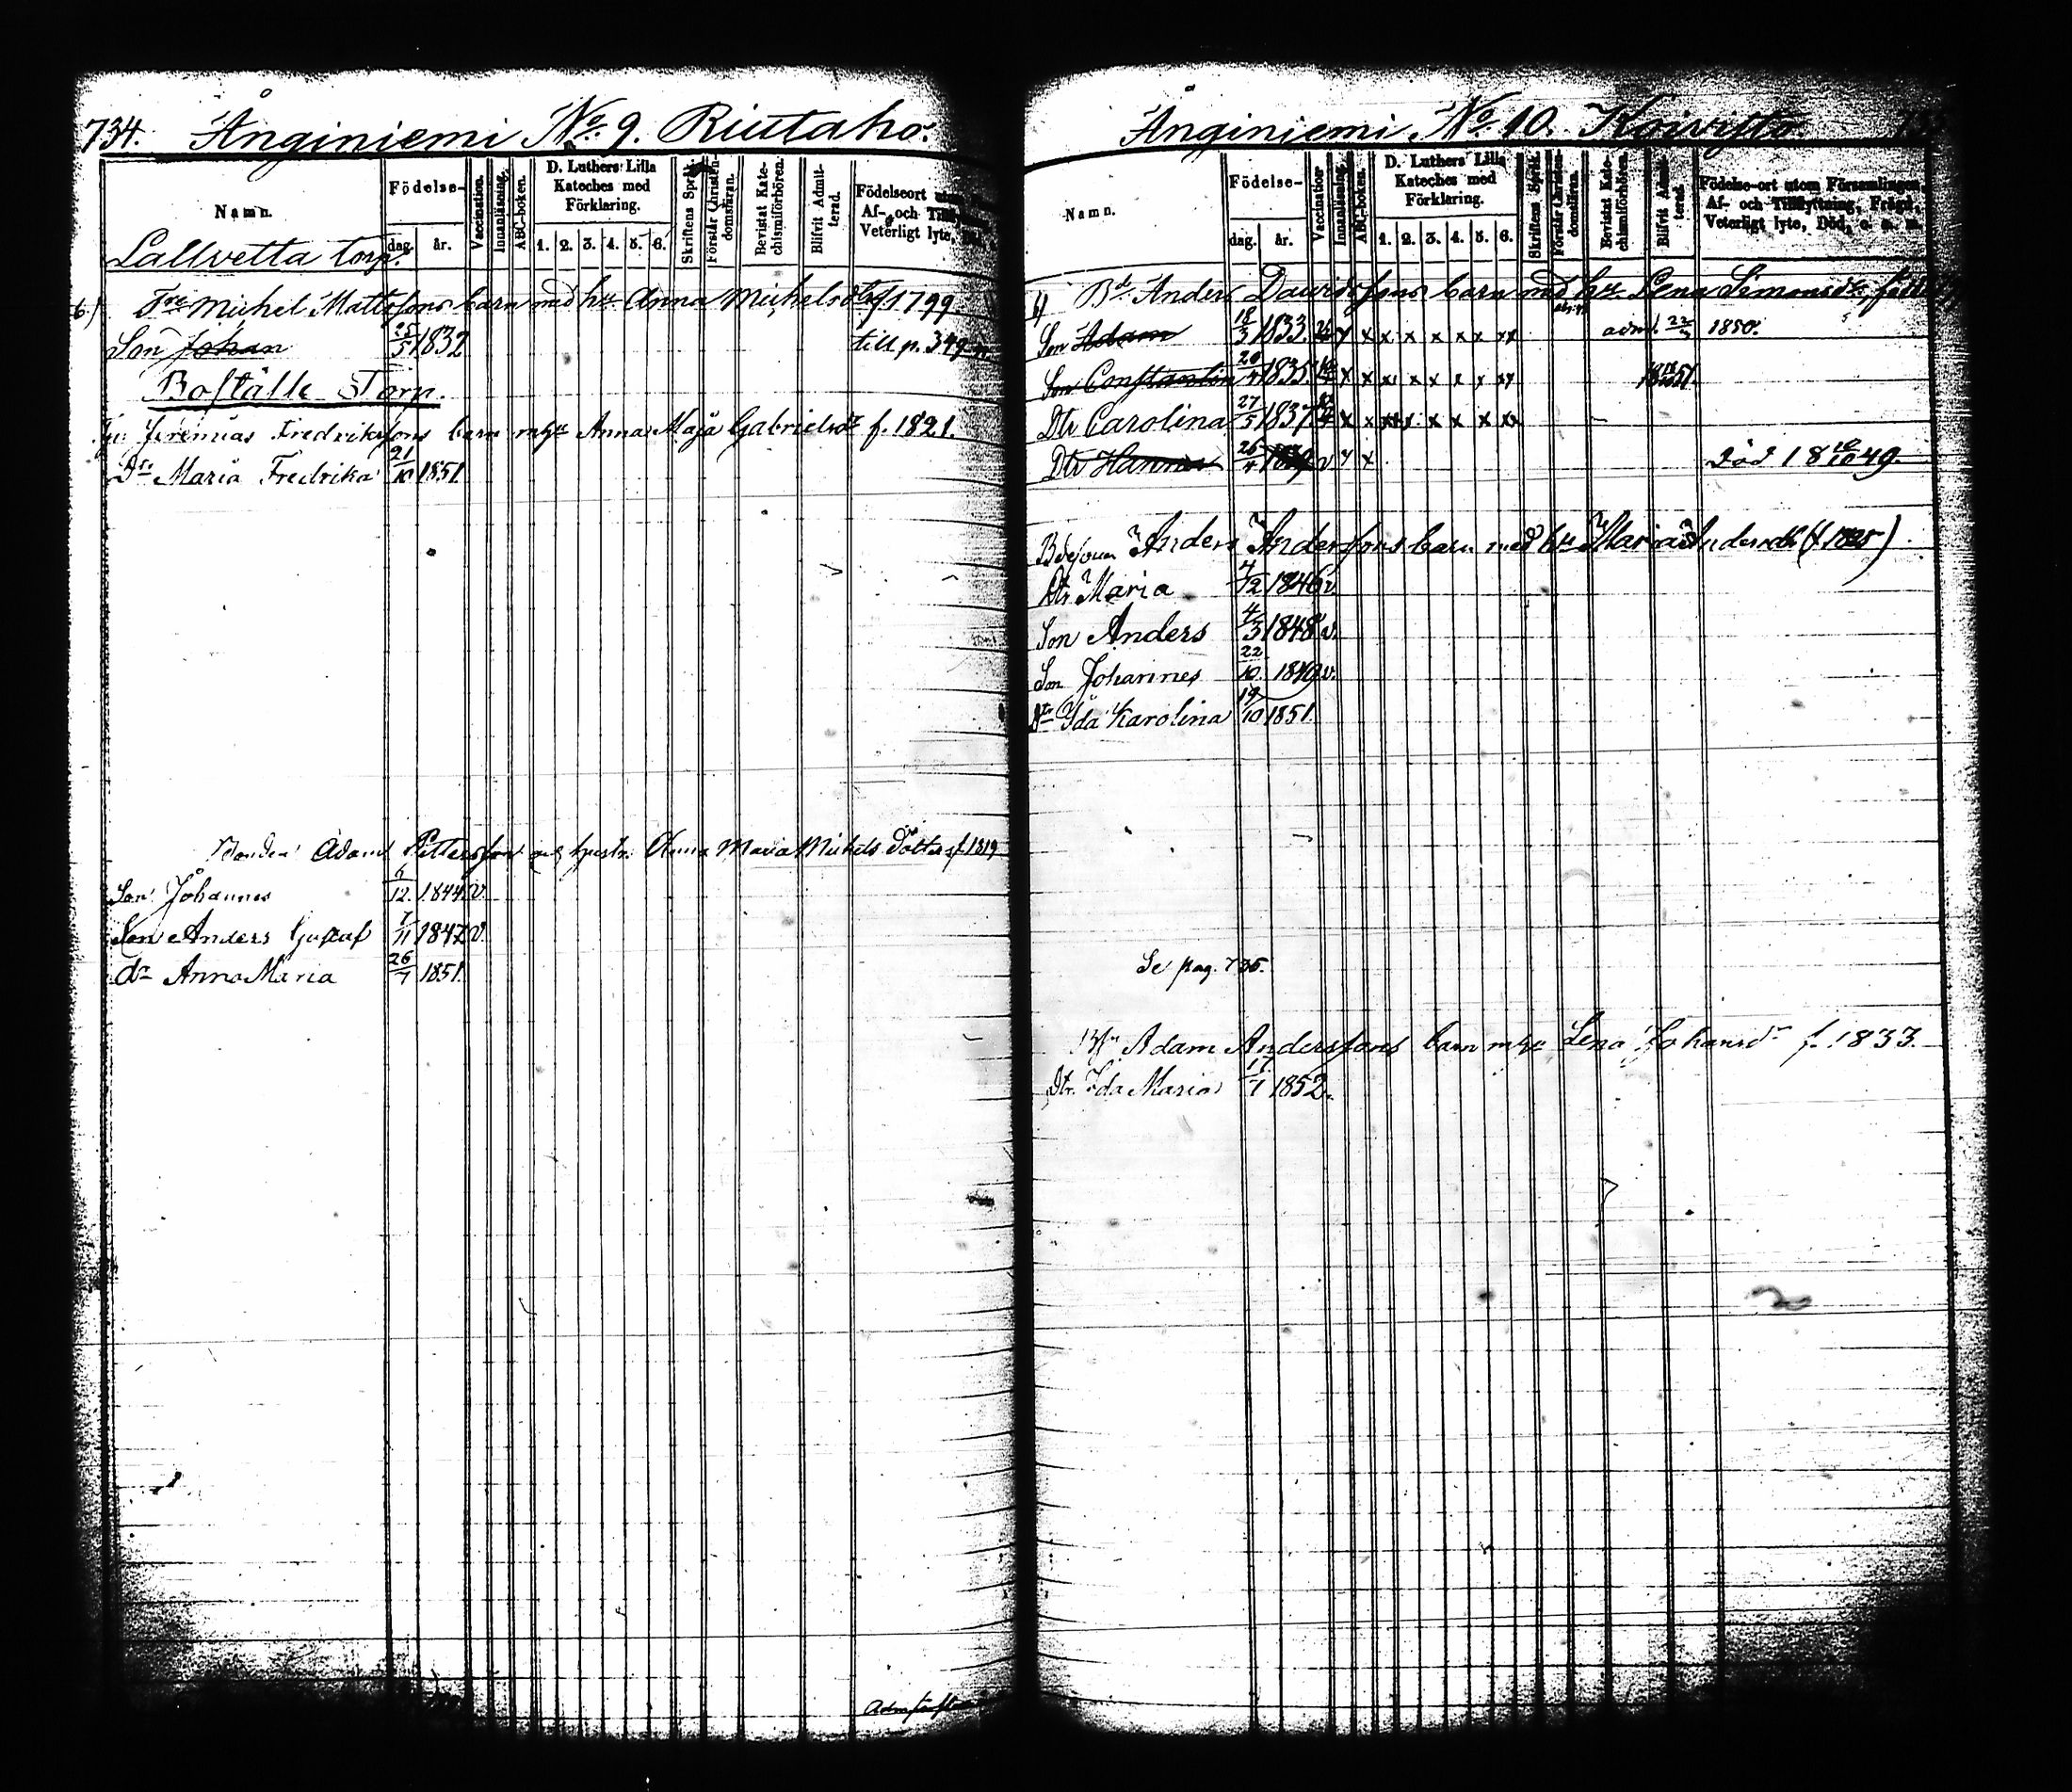 734. Ånginiemi No. 9. Riutaho.
Namn.
Födelse-
dag. år.
Vaccination.
Innanläsning.
ABC-boken.
D. Luthers Lilla
Kateches med
Förklaring.
1. 2. 3. 4. 5. 6.
Skriftens Språk
Förstår Christen-
domsläran.
Bevistat Kate-
chismiförhören.
Blifvit Admit-
terad.
Födelseort utom
Af- och
Veterligt lyte,
Lallvetta torp.
6.) Michel Mattssons barn med hu Anna Michelsdtr f 1799.
Son Johan 25/5 1832 till p. 349
Boställe Torp.
Jeremias Fredrikssons barn m hu Anna Maja Gabrielsdr f. 1821.
Dr Maria Fredrika 21/10 1851
Bonden Adam Pettersson och hustr. Anna Maria Michels dotters f. 1819
Son Johannes 6/12. 1844. v.
Son Anders Gustaf 7/11 1847 v.
dr Anna Maria 26/7 1851.
Ånginiemi No. 10. Koivisto
Namn.
Födelse-
dag. år.
Vaccination
Innanläsning.
ABC-boken.
D. Luthers Lilla
Kateches med
Förklaring.
1. 2. 3. 4. 5. 6.
Skriftens Språk.
Förstår Christen-
domsläran.
Bevistat Kate-
chismiförhören.
Blifvit Admit-
terad.
Födelse-ort utom Församlingen,
Af- och Tillflyttning, Frägd,
Veterligt lyte, Död, o. s. m.
Bd. Anders Davidssons barn med hu Lena Simonsdr
Son Adam 18/3 1833. y x x x x x x admt. 1850.
Son Constantin 20/4 1835. y x x x x x
Dtr Carolina 27/5 1837. x x x x x x
Dtr Hanna 26/4 v y x Död 18 10/10 49.
Anders Anderssons barn med hu Maria Andersdtr
Dtr Maria 4/12 1846 v.
Son Anders 4/3 1848 v.
Son Johannes 22/10. 1849 v.
Dtr Ida Karolina 19/10 1851.
Se pag. 736.
Adam Anderssons barn m hu Lena Johansdr f. 1833.
Dtr. Ida Maria 17/1 1852.